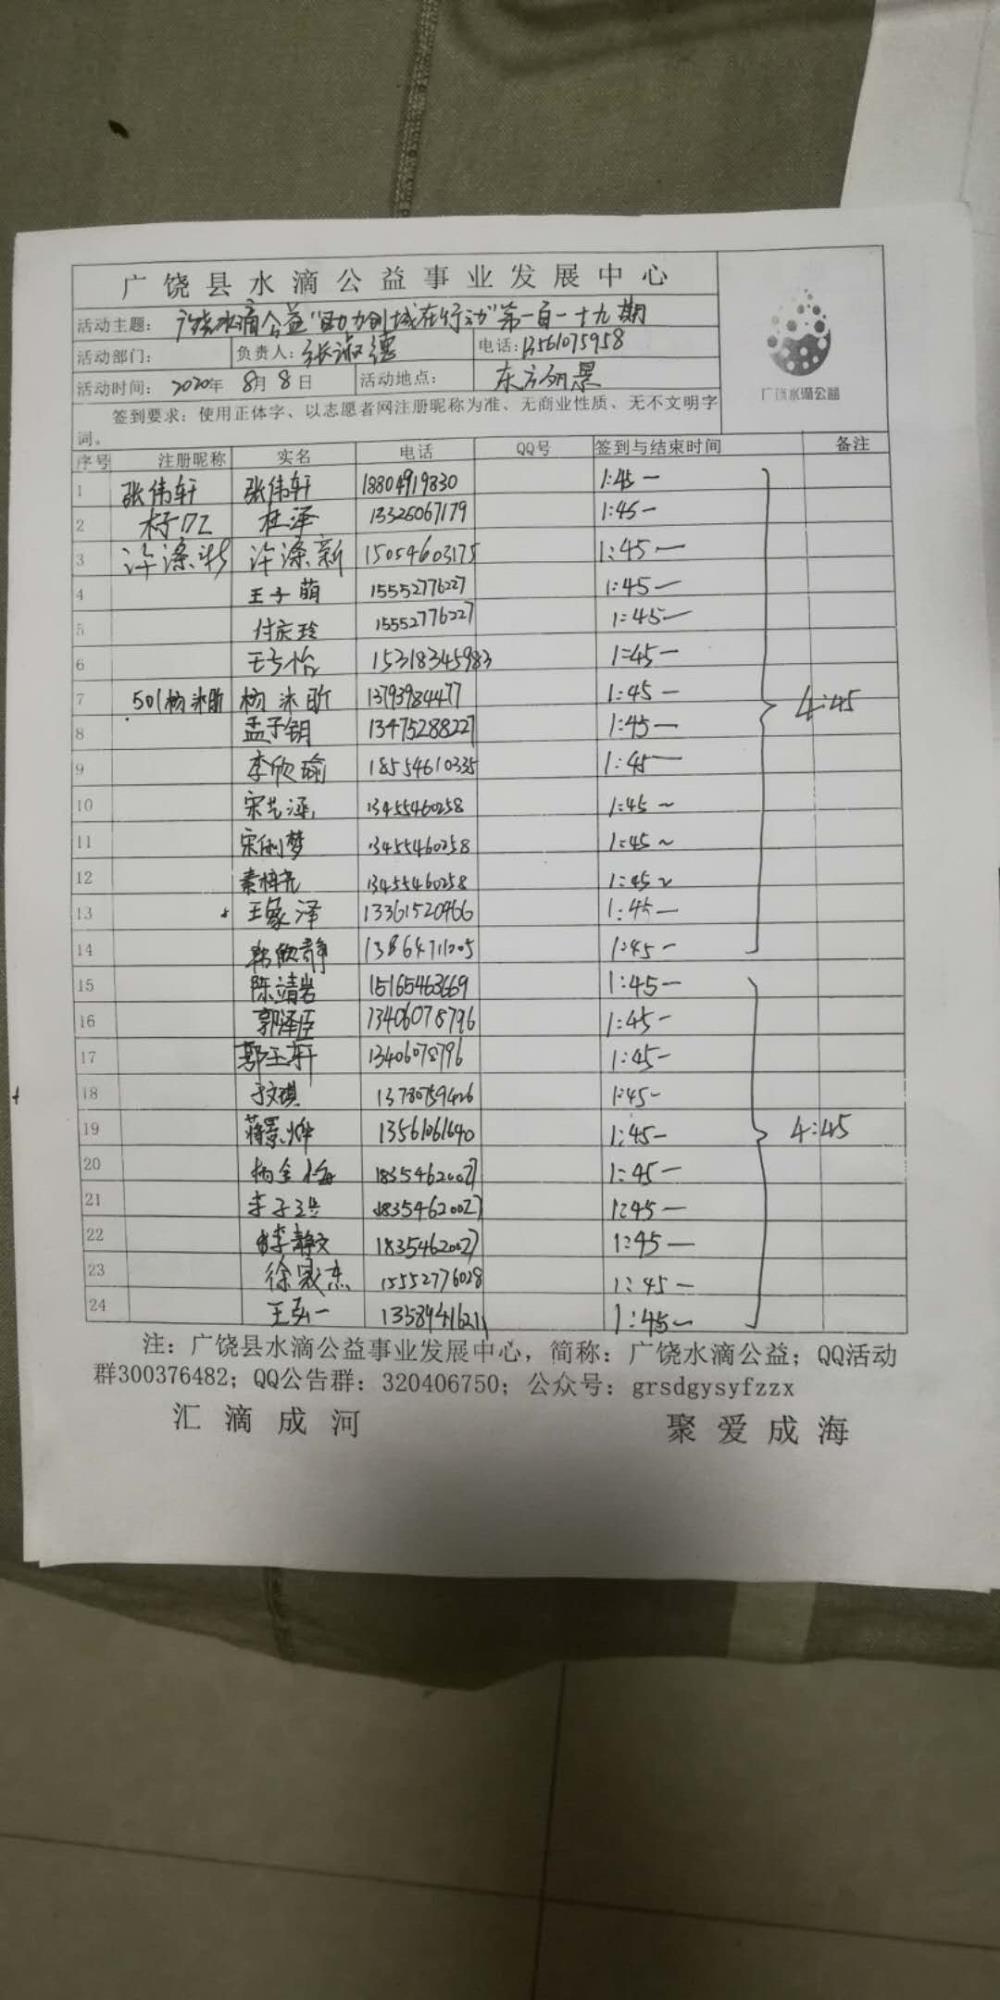 广饶县水滴公益事业发展中心
活动主题：广饶水滴公益"助力创城在行动"第一百一十九期
活动部门： 负责人：张淑德 电话：13561075958
活动时间：2020年8月8日 活动地点：东方丽景
广饶水滴公益
签到要求：使用正体字、以志愿者网注册昵称为准、无商业性质、无不文明字
词。
序号 注册昵称 实名 电话 QQ号 签到与结束时间 备注
1 张伟轩 张伟轩 18804919830 1:45—
2 杜泽 13325067179 1:45—
3 许涤新 许涤新 15054603175 1:45—
4 王子萌 15552776227 1:45—
5 付庆玲 15552776227 1:45—
6 15318345983 1:45—
7 501杨沐昕 杨沐昕 13793984477 1:45— 4:45
8 孟子钥 13475288227 1:45—
9 李欣瑜 18554610335 1:45—
10 宋艺涵 13455460258 1:45~
11 宋俐梦 13455460258 1:45~
12 秦梓尧 13455460258 1:45~
13 王家泽 13361520966 1:45—
14 韩欣静 13864711005 1:45—
15 陈靖岩 15165463669 1:45—
16 郭泽臣 13406078796 1:45—
17 郭玉轩 13406078796 1:45—
18 于文琪 13780759426 1:45—
19 蒋景烨 13561061640 1:45— 4:45
20 杨金梅 18354620027 1:45—
21 李子洪 18354620027 1:45—
22 李静文 18354620027 1:45—
23 徐晟杰 15552776028 1:45—
24 王弘一 13589941621 1:45—
注：广饶县水滴公益事业发展中心，简称：广饶水滴公益；QQ活动
群300376482；QQ公告群：320406750；公众号：grsdgysyfzzx
汇滴成河 聚爱成海